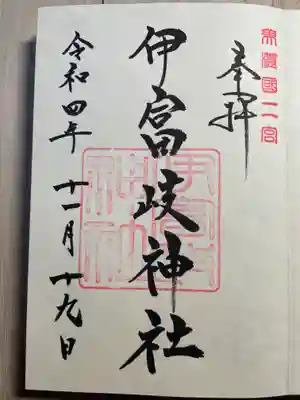 美濃國二宮
奉拝
伊富岐神社
令和四年 十一月 十九日